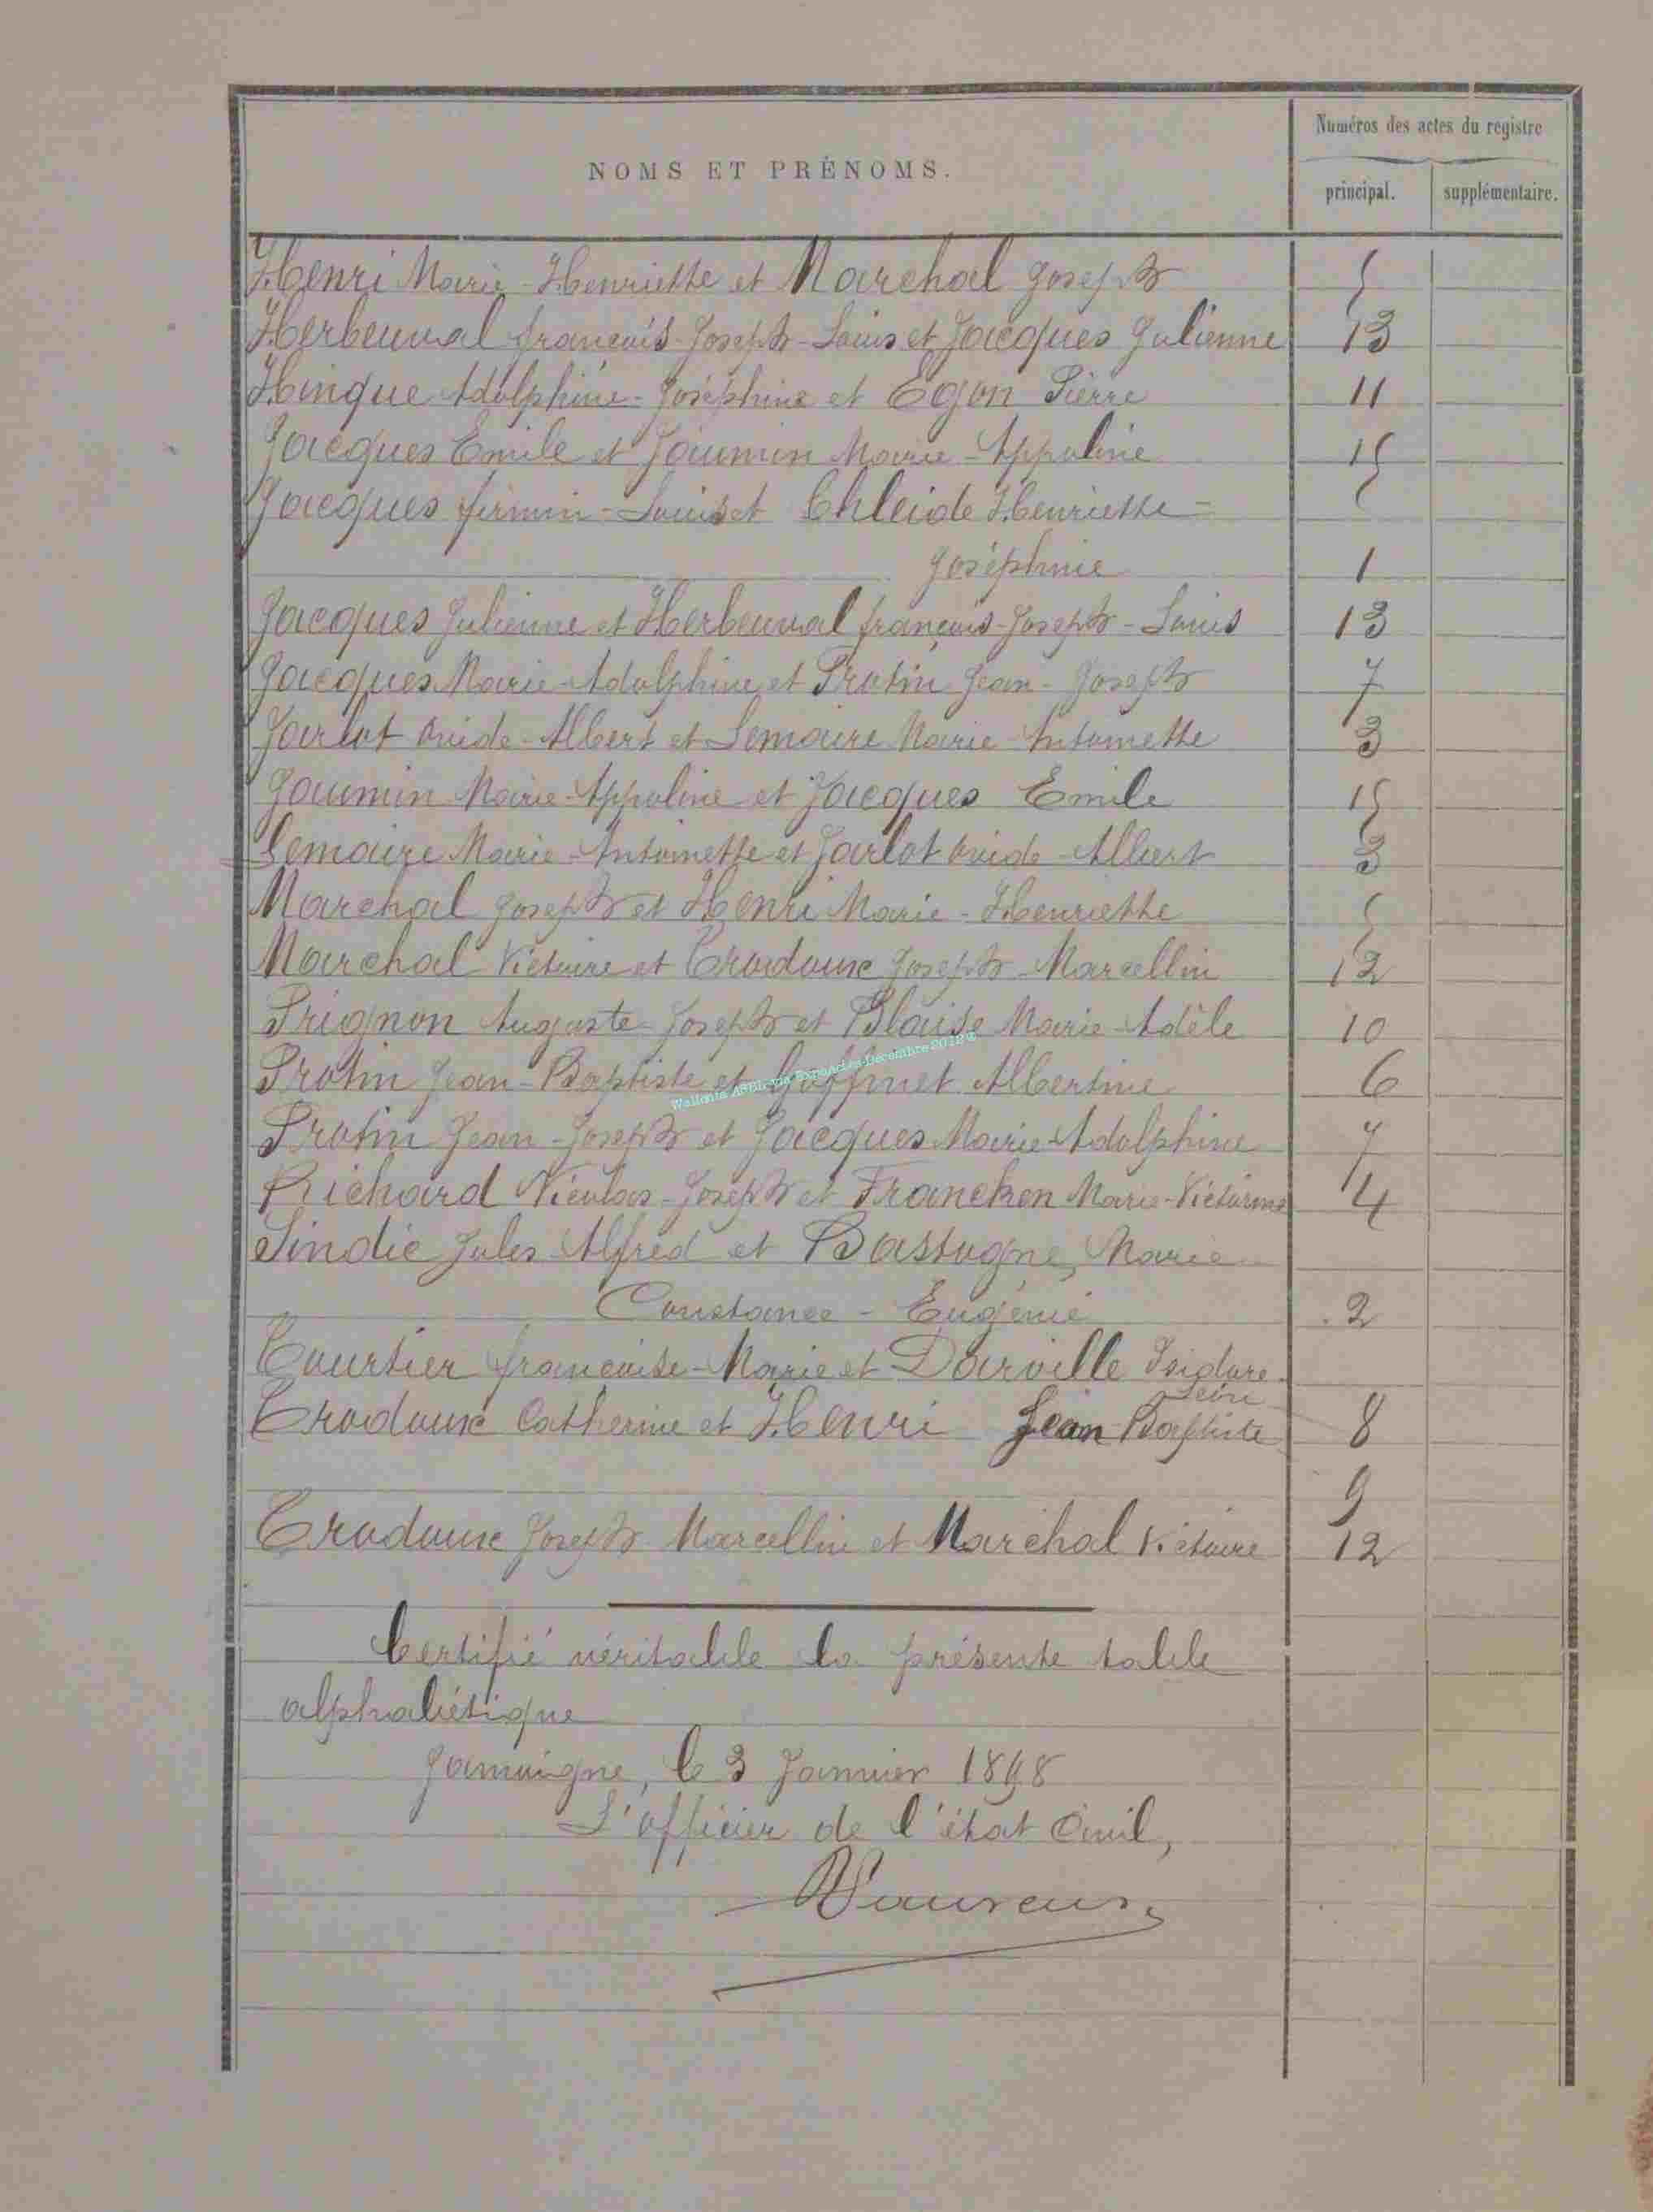 Numéros des actes du registre
NOMS ET PRÉNOMS.
principal. supplémentaire.
Henri Marie-Henriette et Marchal Joseph 5
Herbeuval françois-Joseph-Louis et Jacques Julienne 13
Hinque Adolphine-Joséphine et Egon Pierre 11
Jacques Emile et Jaumin Marie-Appoline 15
Jacques firmin-Louis et Chleide Henriette-
Joséphine 1
Jacques Julienne et Herbeuval françois-Joseph-Louis 13
Jacques Marie-Adolphine et Protin Jean-Joseph 7
Jarlot Ovide-Albert et Lemaire Marie-Antoinette 3
Jaumin Marie-Appoline et Jacques Emile 15
Lemaire Marie-Antoinette et Jarlot Ovide-Albert 3
Marchal Joseph et Henri Marie-Henriette 5
Marchal Victoire et Trodoux Joseph-Marcellin 12
Prignon Auguste-Joseph et Blaise Marie-Adèle 10
Protin Jean-Baptiste et Goffinet Albertine 6
Protin Jean-Joseph et Jacques Marie-Adolphine 7
Richard Nicolas-Joseph et Franchon Marie-Victorine 4
Sindic Jules-Alfred et Bastogne, Marie
Constance-Eugénie 2
Tourtier françoise-Marie et Darville Isidore
Léon 8
Trodoux Catherine et Henri Jean-Baptiste
9
Trodoux Joseph-Marcellin et Maréchal Victoire 12
Certifié véritable la présente table
alphabétique
Jamoigne, le 3 Janvier 1898
L'officier de l'état Civil,
Wallonia ASBL via Expoactes-Décembre 2012 ©